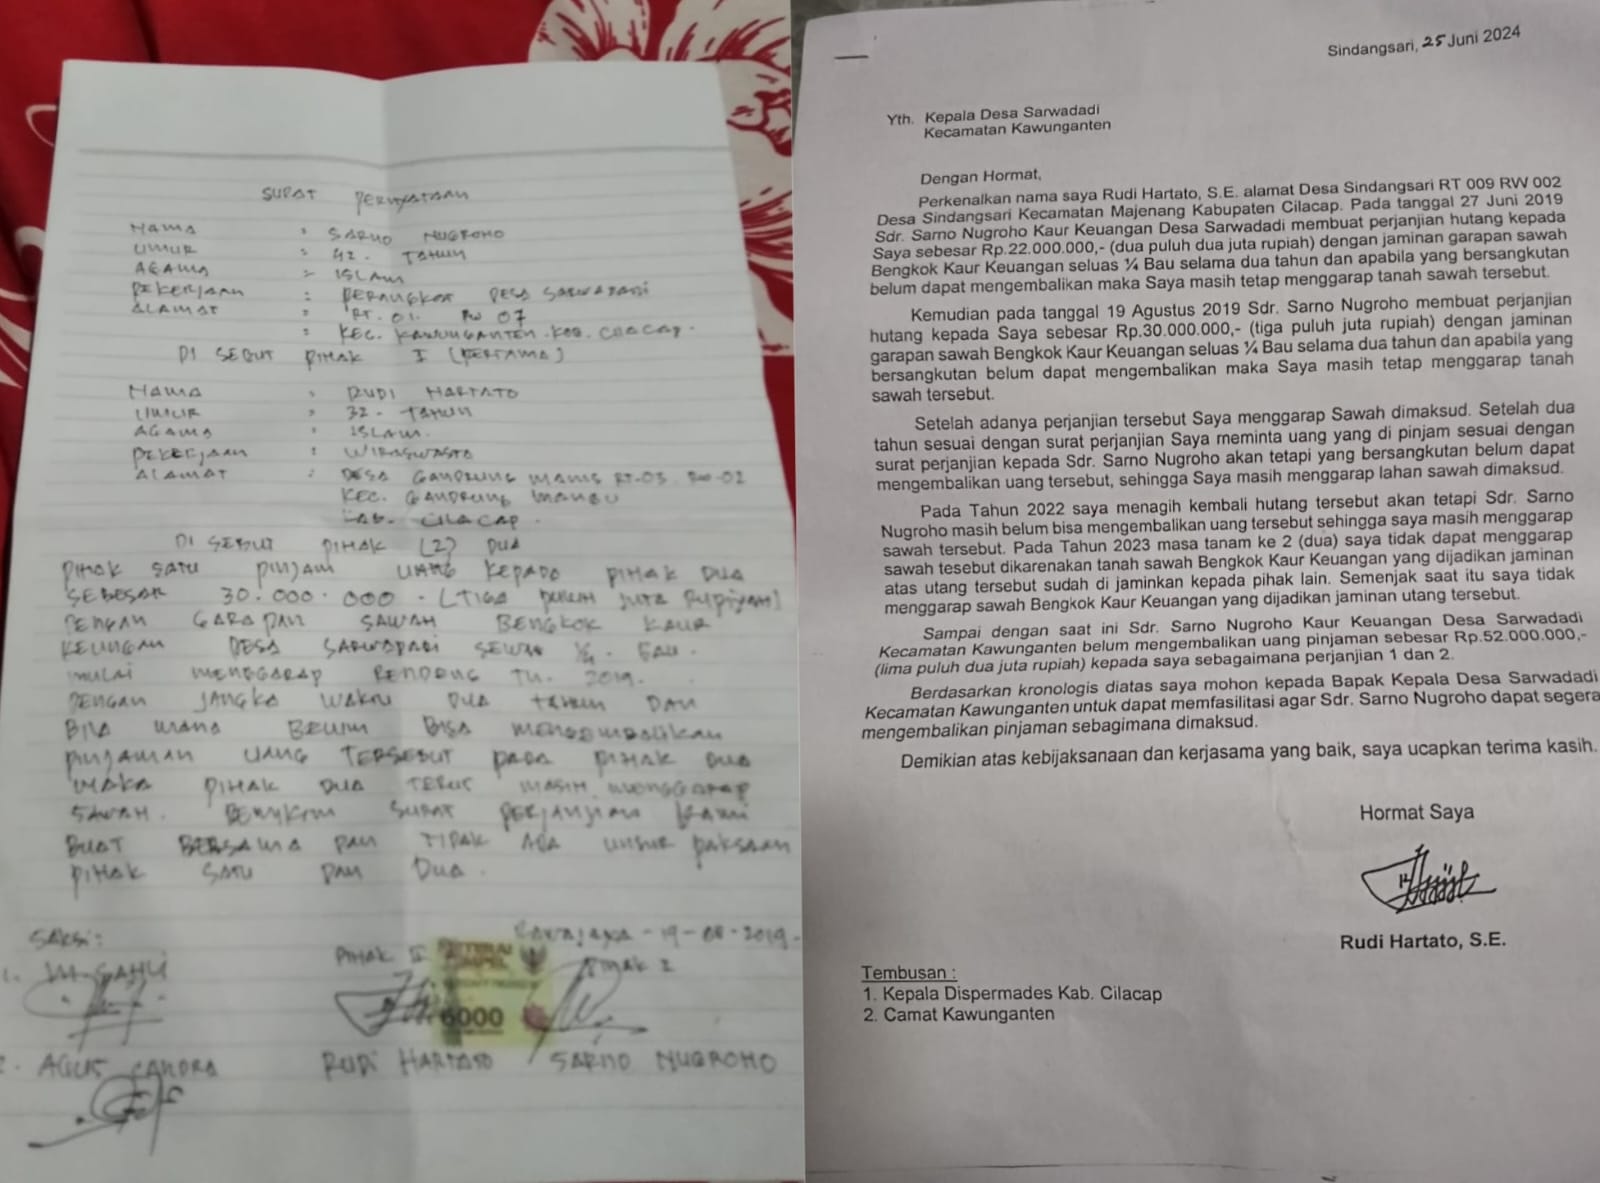 SURAT PERNYATAAN
NAMA : SARNO NUGROHO
UMUR : 42. TAHUN
AGAMA : ISLAM
PEKERJAAN : PERANGKAT DESA SARWADADI
ALAMAT : RT. 01. RW 07
: KEC. KAWUNGANTEN. KAB. CILACAP.
DI SEBUT PIHAK I (PERTAMA)
NAMA : RUDI HARTATO
UMUR : 32. TAHUN
AGAMA : ISLAM.
PEKERJAAN : WIRASWASTA
ALAMAT : DESA GANDRUNG MANIS RT.03 RW.02
KEC. GANDRUNG MANGU
KAB. CILACAP.
DI SEBUT PIHAK (2) DUA
PIHAK SATU PINJAM UANG KEPADA PIHAK DUA
SEBESAR 30.000.000. (TIGA PULUH JUTA RUPIYAH)
DENGAN GARAPAN SAWAH BENGKOK KAUR
KEUNGAN DESA SARWADADI 1/4. BAU.
MULAI MENGGARAP RENDENG TH. 2019.
DENGAN JANGKA WAKTU DUA TAHUN DAN
BILA MANA BELUM BISA MENGEMBALIKAN
PINJAMAN UANG TERSEBUT PADA PIHAK DUA
MAKA PIHAK DUA TERUS MASIH MENGGARAP
SAWAH. SURAT PERJANJIAN KAMI
BUAT BERSAMA DAN TIDAK ADA UNSUR PAKSAAN
PIHAK SATU DAN DUA.
SAKSI: -19-08-2019-
1. PIHAK II PIHAK I
6000
2. AGUS CANDRA RUDI HARTATO SARNO NUGROHO
Sindangsari, 25 Juni 2024
Yth. Kepala Desa Sarwadadi
Kecamatan Kawunganten
Dengan Hormat,
Perkenalkan nama saya Rudi Hartato, S.E. alamat Desa Sindangsari RT 009 RW 002
Desa Sindangsari Kecamatan Majenang Kabupaten Cilacap. Pada tanggal 27 Juni 2019
Sdr. Sarno Nugroho Kaur Keuangan Desa Sarwadadi membuat perjanjian hutang kepada
Saya sebesar Rp.22.000.000,- (dua puluh dua juta rupiah) dengan jaminan garapan sawah
Bengkok Kaur Keuangan seluas ¼ Bau selama dua tahun dan apabila yang bersangkutan
belum dapat mengembalikan maka Saya masih tetap menggarap tanah sawah tersebut.
Kemudian pada tanggal 19 Agustus 2019 Sdr. Sarno Nugroho membuat perjanjian
hutang kepada Saya sebesar Rp.30.000.000,- (tiga puluh juta rupiah) dengan jaminan
garapan sawah Bengkok Kaur Keuangan seluas ¼ Bau selama dua tahun dan apabila yang
bersangkutan belum dapat mengembalikan maka Saya masih tetap menggarap tanah
sawah tersebut.
Setelah adanya perjanjian tersebut Saya menggarap Sawah dimaksud. Setelah dua
tahun sesuai dengan surat perjanjian Saya meminta uang yang di pinjam sesuai dengan
surat perjanjian kepada Sdr. Sarno Nugroho akan tetapi yang bersangkutan belum dapat
mengembalikan uang tersebut, sehingga Saya masih menggarap lahan sawah dimaksud.
Pada Tahun 2022 saya menagih kembali hutang tersebut akan tetapi Sdr. Sarno
Nugroho masih belum bisa mengembalikan uang tersebut sehingga saya masih menggarap
sawah tersebut. Pada Tahun 2023 masa tanam ke 2 (dua) saya tidak dapat menggarap
sawah tesebut dikarenakan tanah sawah Bengkok Kaur Keuangan yang dijadikan jaminan
atas utang tersebut sudah di jaminkan kepada pihak lain. Semenjak saat itu saya tidak
menggarap sawah Bengkok Kaur Keuangan yang dijadikan jaminan utang tersebut.
Sampai dengan saat ini Sdr. Sarno Nugroho Kaur Keuangan Desa Sarwadadi
Kecamatan Kawunganten belum mengembalikan uang pinjaman sebesar Rp.52.000.000,-
(lima puluh dua juta rupiah) kepada saya sebagaimana perjanjian 1 dan 2.
Berdasarkan kronologis diatas saya mohon kepada Bapak Kepala Desa Sarwadadi
Kecamatan Kawunganten untuk dapat memfasilitasi agar Sdr. Sarno Nugroho dapat segera
mengembalikan pinjaman sebagimana dimaksud.
Demikian atas kebijaksanaan dan kerjasama yang baik, saya ucapkan terima kasih.
Hormat Saya
Rudi Hartato, S.E.
Tembusan :
1. Kepala Dispermades Kab. Cilacap
2. Camat Kawunganten